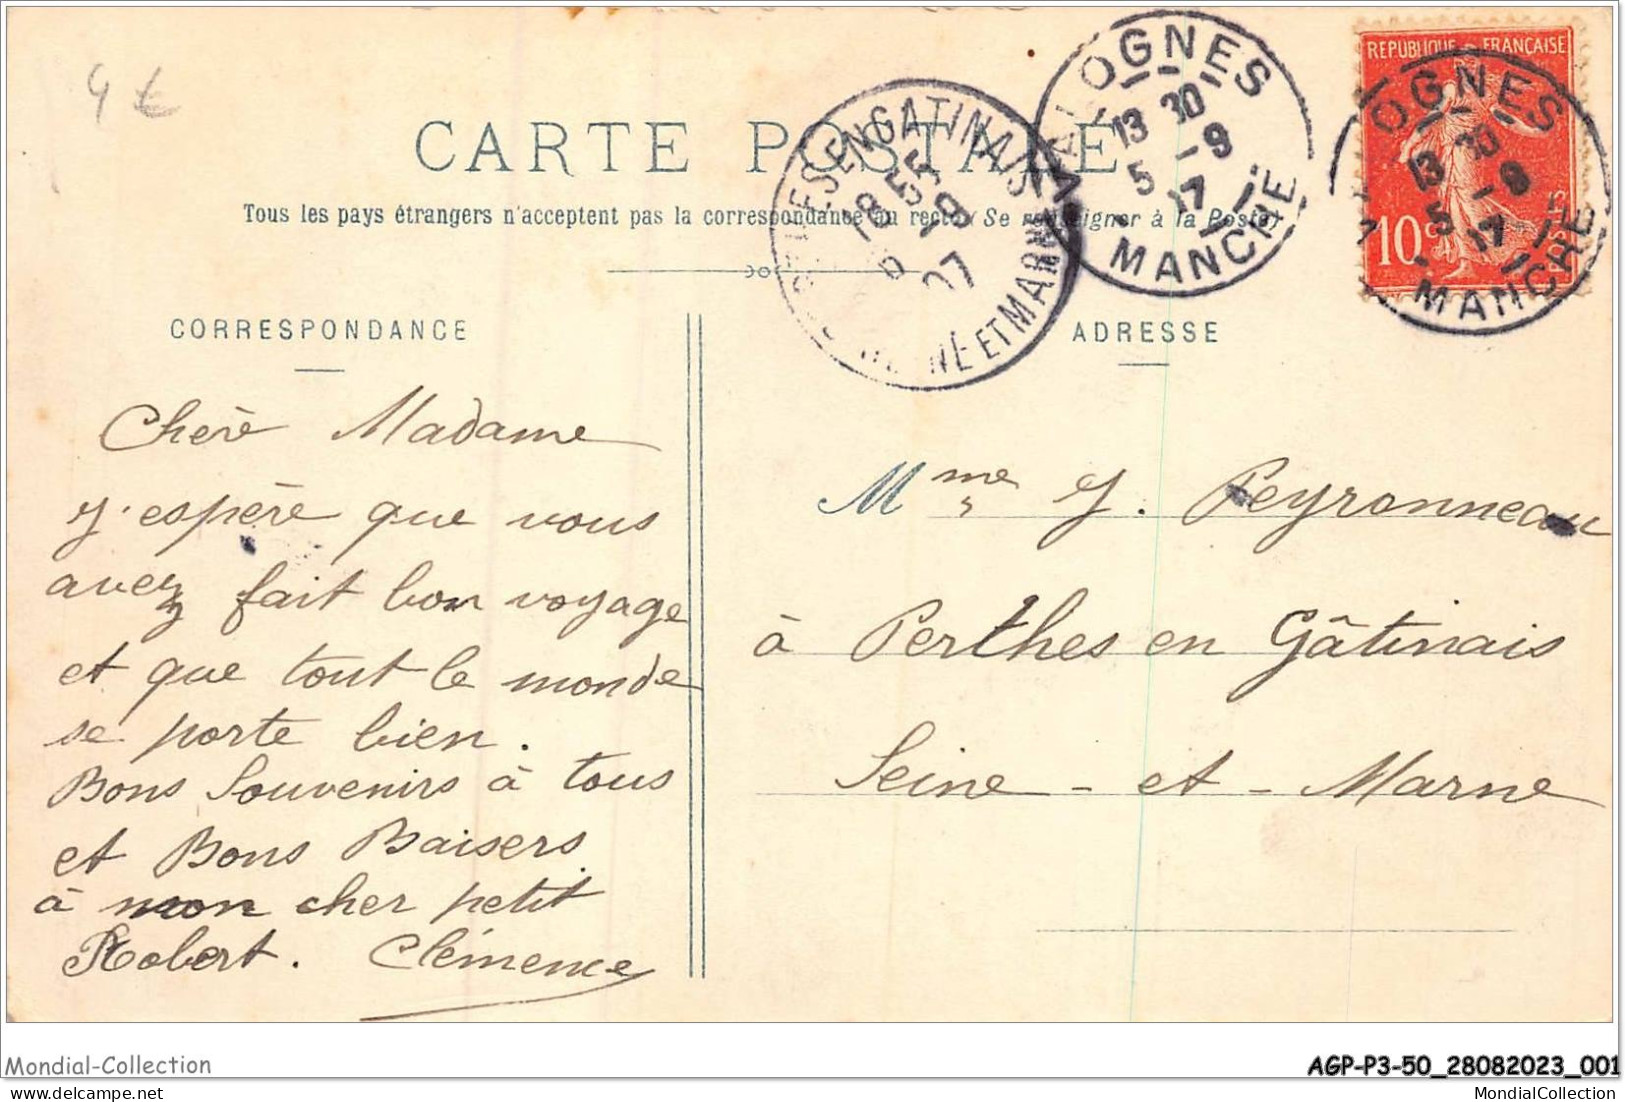 4 €
CARTE POSTALE
Tous les pays étrangers n'acceptent pas la correspondance au recto (Se renseigner à la Poste)
CORRESPONDANCE
ADRESSE
VALOGNES
13 30
5 -9
MANCHE
PERTHES EN GATINAIS
18 55
-9
07
SEINE ET MARNE
REPUBLIQUE FRANÇAISE
10 c
POSTES
OGNES
13 30
5 -9
MANCHE
Chère Madame
J'espère que vous
avez fait bon voyage
et que tout le monde
se porte bien.
Bons Souvenirs à tous
et Bons Baisers
à mon cher petit
Robert. Clémence
Mme J. Peyronneau
à Perthes en Gâtinais
Seine-et-Marne
Mondial-Collection
AGP-P3-50_28082023_001
MondialCollection